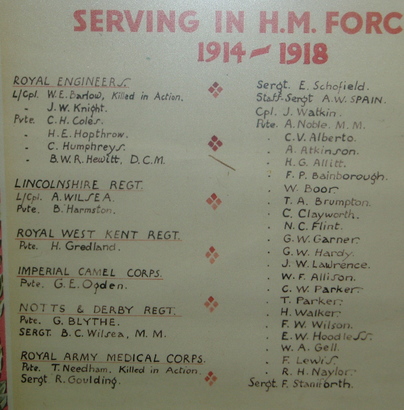 SERVING IN H.M. FORC
1914 - 1918
ROYAL ENGINEERS.
L/Cpl. W.E. Barlow, Killed in Action.
" J.W. Knight.
Pvte. C.H. Coles.
" H.E. Hopthrow.
" C. Humphreys.
" B.W.R. Hewitt, D.C.M.
LINCOLNSHIRE REGT.
L/Cpl. A. WILSEA.
Pvte. B. Harmston.
ROYAL WEST KENT REGT.
Pvte. H. Gredland.
IMPERIAL CAMEL CORPS.
Pvte. G.E. Ogden.
NOTTS & DERBY REGT.
Pvte. G. BLYTHE.
SERGT. B.C. Wilsea, M.M.
ROYAL ARMY MEDICAL CORPS.
Pvte. T. Needham, Killed in Action.
Sergt R. Goulding.
Sergt. E. Schofield.
Staff-Sergt A.W. SPAIN.
Cpl. J. Watkin.
Pvte. A. Noble. M.M.
" C.V. Alberto.
" A. Atkinson.
" H.G. Allitt.
" F.P. Bainborough.
" W. Boor.
" T.A. Brumpton.
" C. Clayworth.
" N.C. Flint.
" G.W. Garner.
" G.W. Hardy.
" J.W. Lawrence.
" W.F. Allison.
" C.W. Parker.
" T. Parker.
" H. Walker.
" F.W. Wilson.
" E.W. Hoodless.
" W.A. Gell.
" F. Lewis.
" R.H. Naylor.
Sergt. F. Staniforth.